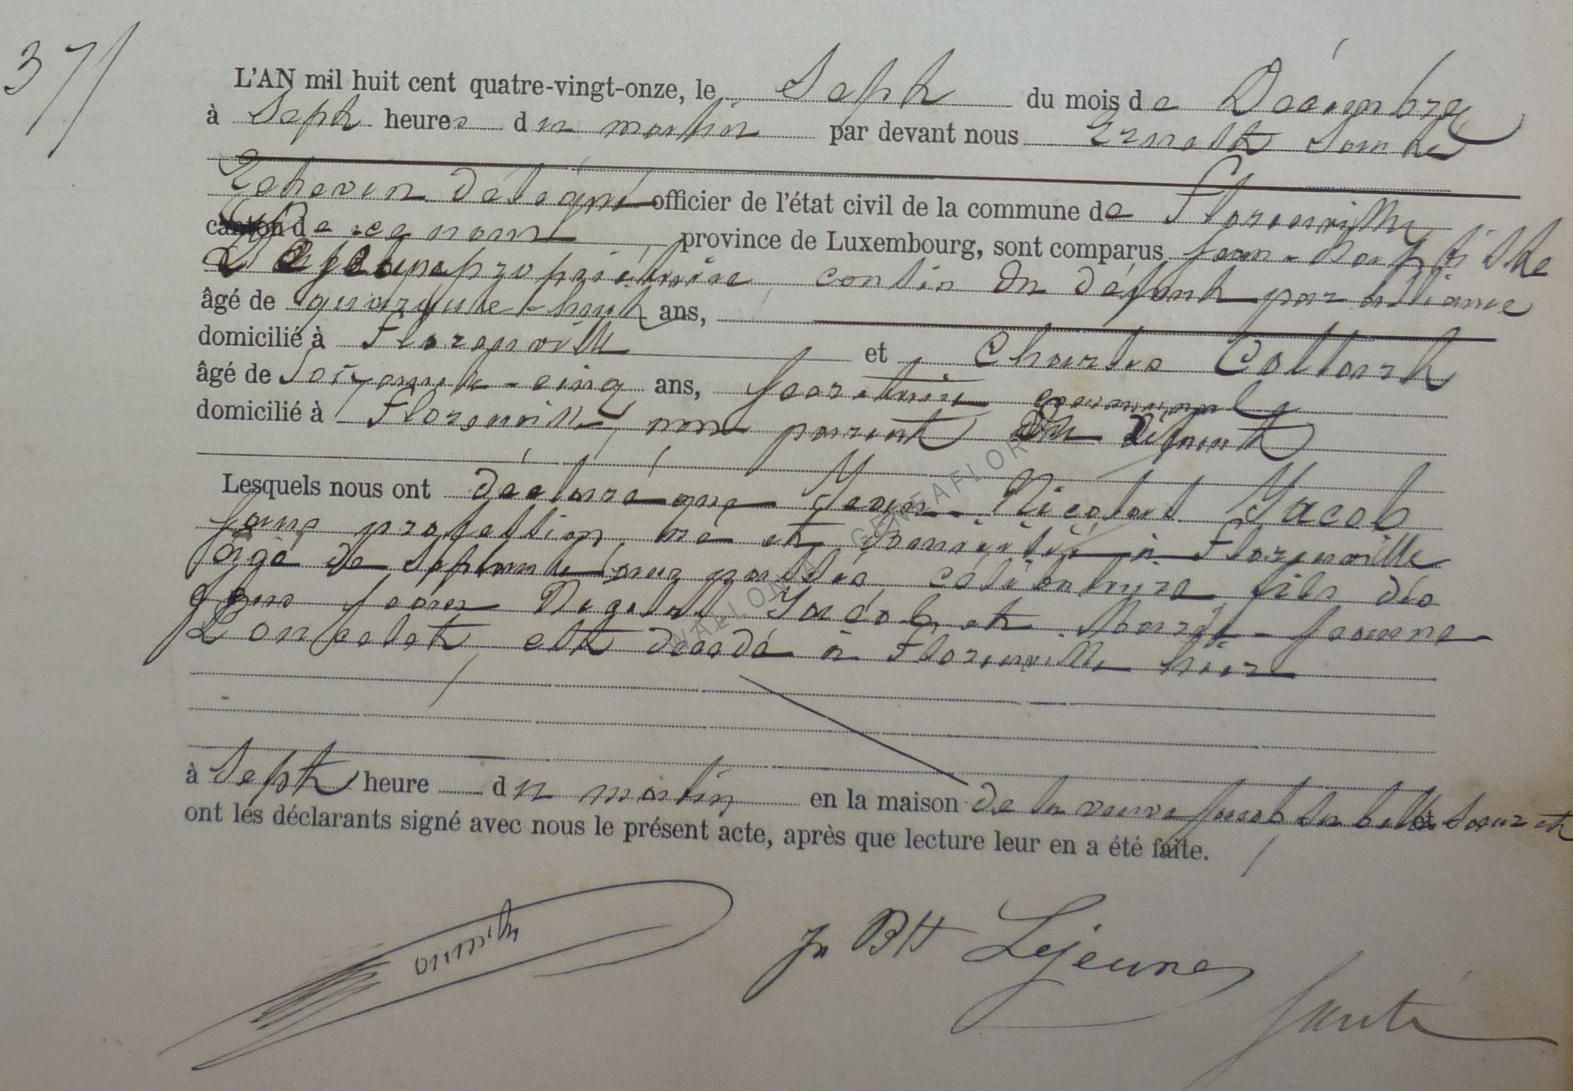 37
L'AN mil huit cent quatre-vingt-onze, le Sept du mois de Décembre
à Sept heures du matin par devant nous Ernest Santé
Echevin délégué officier de l'état civil de la commune de Florenville
canton de ce nom province de Luxembourg, sont comparus Jean-Baptiste
Lejeune propriétaire cousin du défunt par alliance
âgé de quarante-huit ans,
domicilié à Florenville et Charles Collard
âgé de Soixante-cinq ans, Secrétaire communal
domicilié à Florenville, non parent du défunt
Lesquels nous ont déclaré que Jean-Nicolas Jacob
sans profession, né et domicilié à Florenville
âgé de Septante passés célibataire fils des
feus Jean Jacob et Marie-Jeanne
est décédé à Florenville hier
à Sept heure du matin en la maison de la veuve Jacob sa belle soeur et
ont les déclarants signé avec nous le présent acte, après que lecture leur en a été faite.
Jn Bte Lejeune
Santé
WALLONIA GENEAFLOR